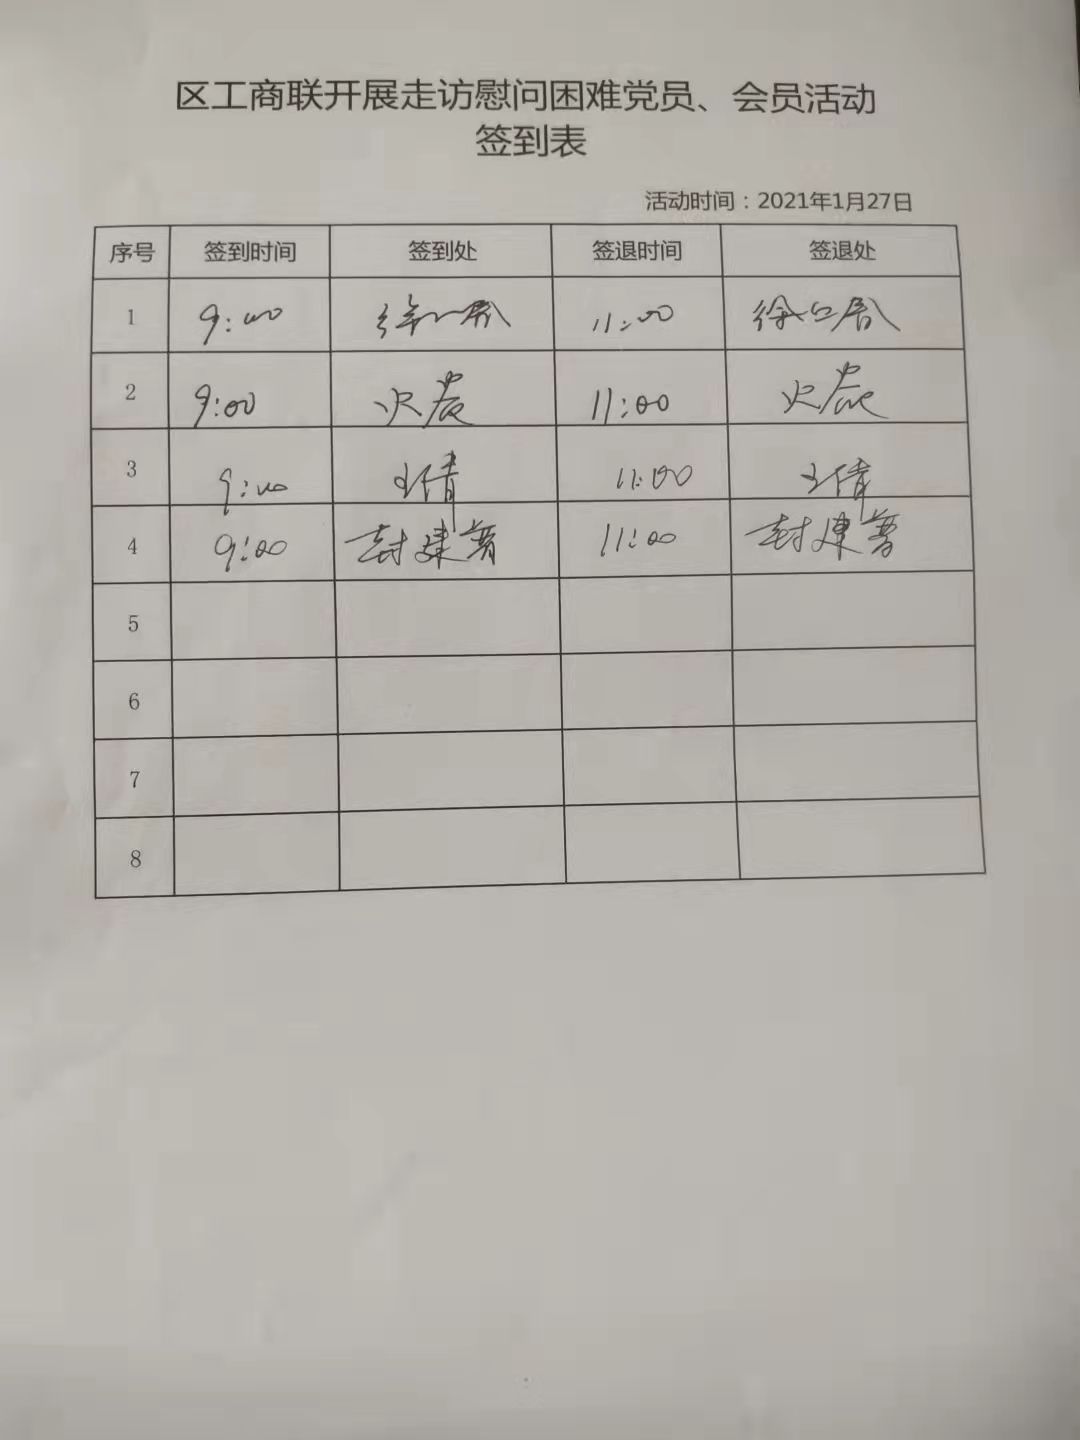 区工商联开展走访慰问困难党员、会员活动
签到表
活动时间：2021年1月27日
序号 签到时间 签到处 签退时间 签退处
1 9:00 11:00
2 9:00 11:00
3 9:00 王倩 11:00 王倩
4 9:00 封建蓉 11:00 封建蓉
5
6
7
8